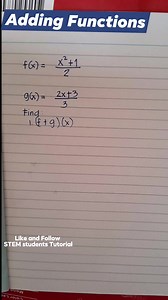 Adding Functions
f(x) = x²+1
2
g(x) = 2x+3
3
Find
1. (f + g)(x)
Like and Follow
STEM students Tutorial